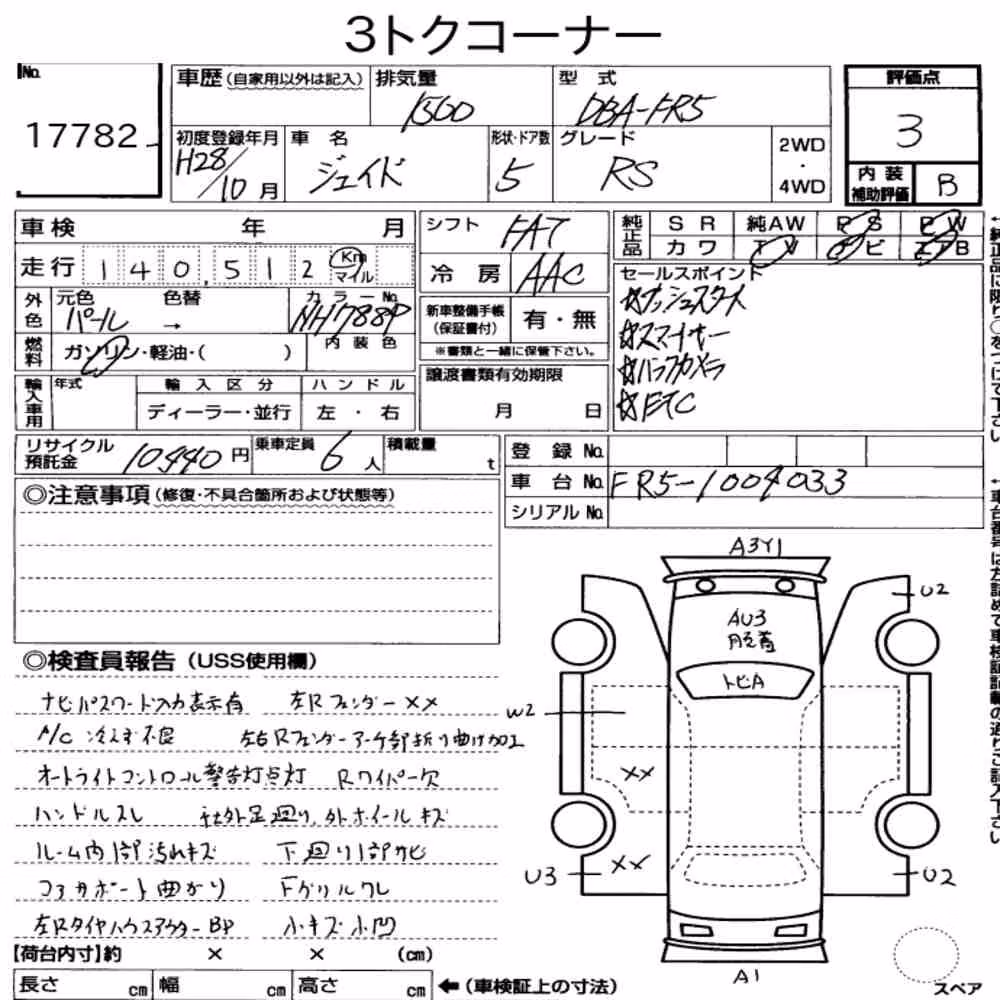 3トクコーナー
No.
17782
車歴(自家用以外は記入)
排気量
1500
型式
DBA-FR5
評価点
3
初度登録年月
H28/10月
車名
ジェイド
形状・ドア数
5
グレード
RS
2WD
・
4WD
内装
補助評価
B
車検 年 月
シフト
FAT
純正品
SR 純AW PS PW
カワ TV ナビ エアB
走行 140,512 Km
マイル
冷房
AAC
セールスポイント
☆プッシュスタート
☆スマートキー
☆バックカメラ
☆ETC
外色
元色 色替
パール →
カラーNo.
NH788P
新車整備手帳
(保証書付)
有・無
※書類と一緒に保管下さい。
燃料
ガソリン・軽油・( )
内装色
譲渡書類有効期限
月 日
輸入車用
年式
輸入区分
ディーラー・並行
ハンドル
左・右
リサイクル
預託金
10440円
乗車定員
6人
積載量
t
登録No.
車台No.
FR5-1004033
シリアルNo.
◎注意事項(修復・不具合箇所および状態等)
◎検査員報告(USS使用欄)
ナビパスワード入力表示有 左Rフェンダー××
A/C 冷えず不良 左右Rフェンダーアーチ部折り曲げ加工
オートライトコントロール警告灯点灯 Rワイパー欠
ハンドルスレ 社外足廻り、外ホイールキズ
ルーム内1部汚れキズ 下廻り1部サビ
コアサポート曲がり Fグリルワレ
左Rタイヤハウスアウター BP 小キズ小凹
A3Y1
U2
AU3
トビA
W2
××
××
U3
U2
A1
スペア
【荷台内寸】約 × × (cm)
長さ cm 幅 cm 高さ cm
←(車検証上の寸法)